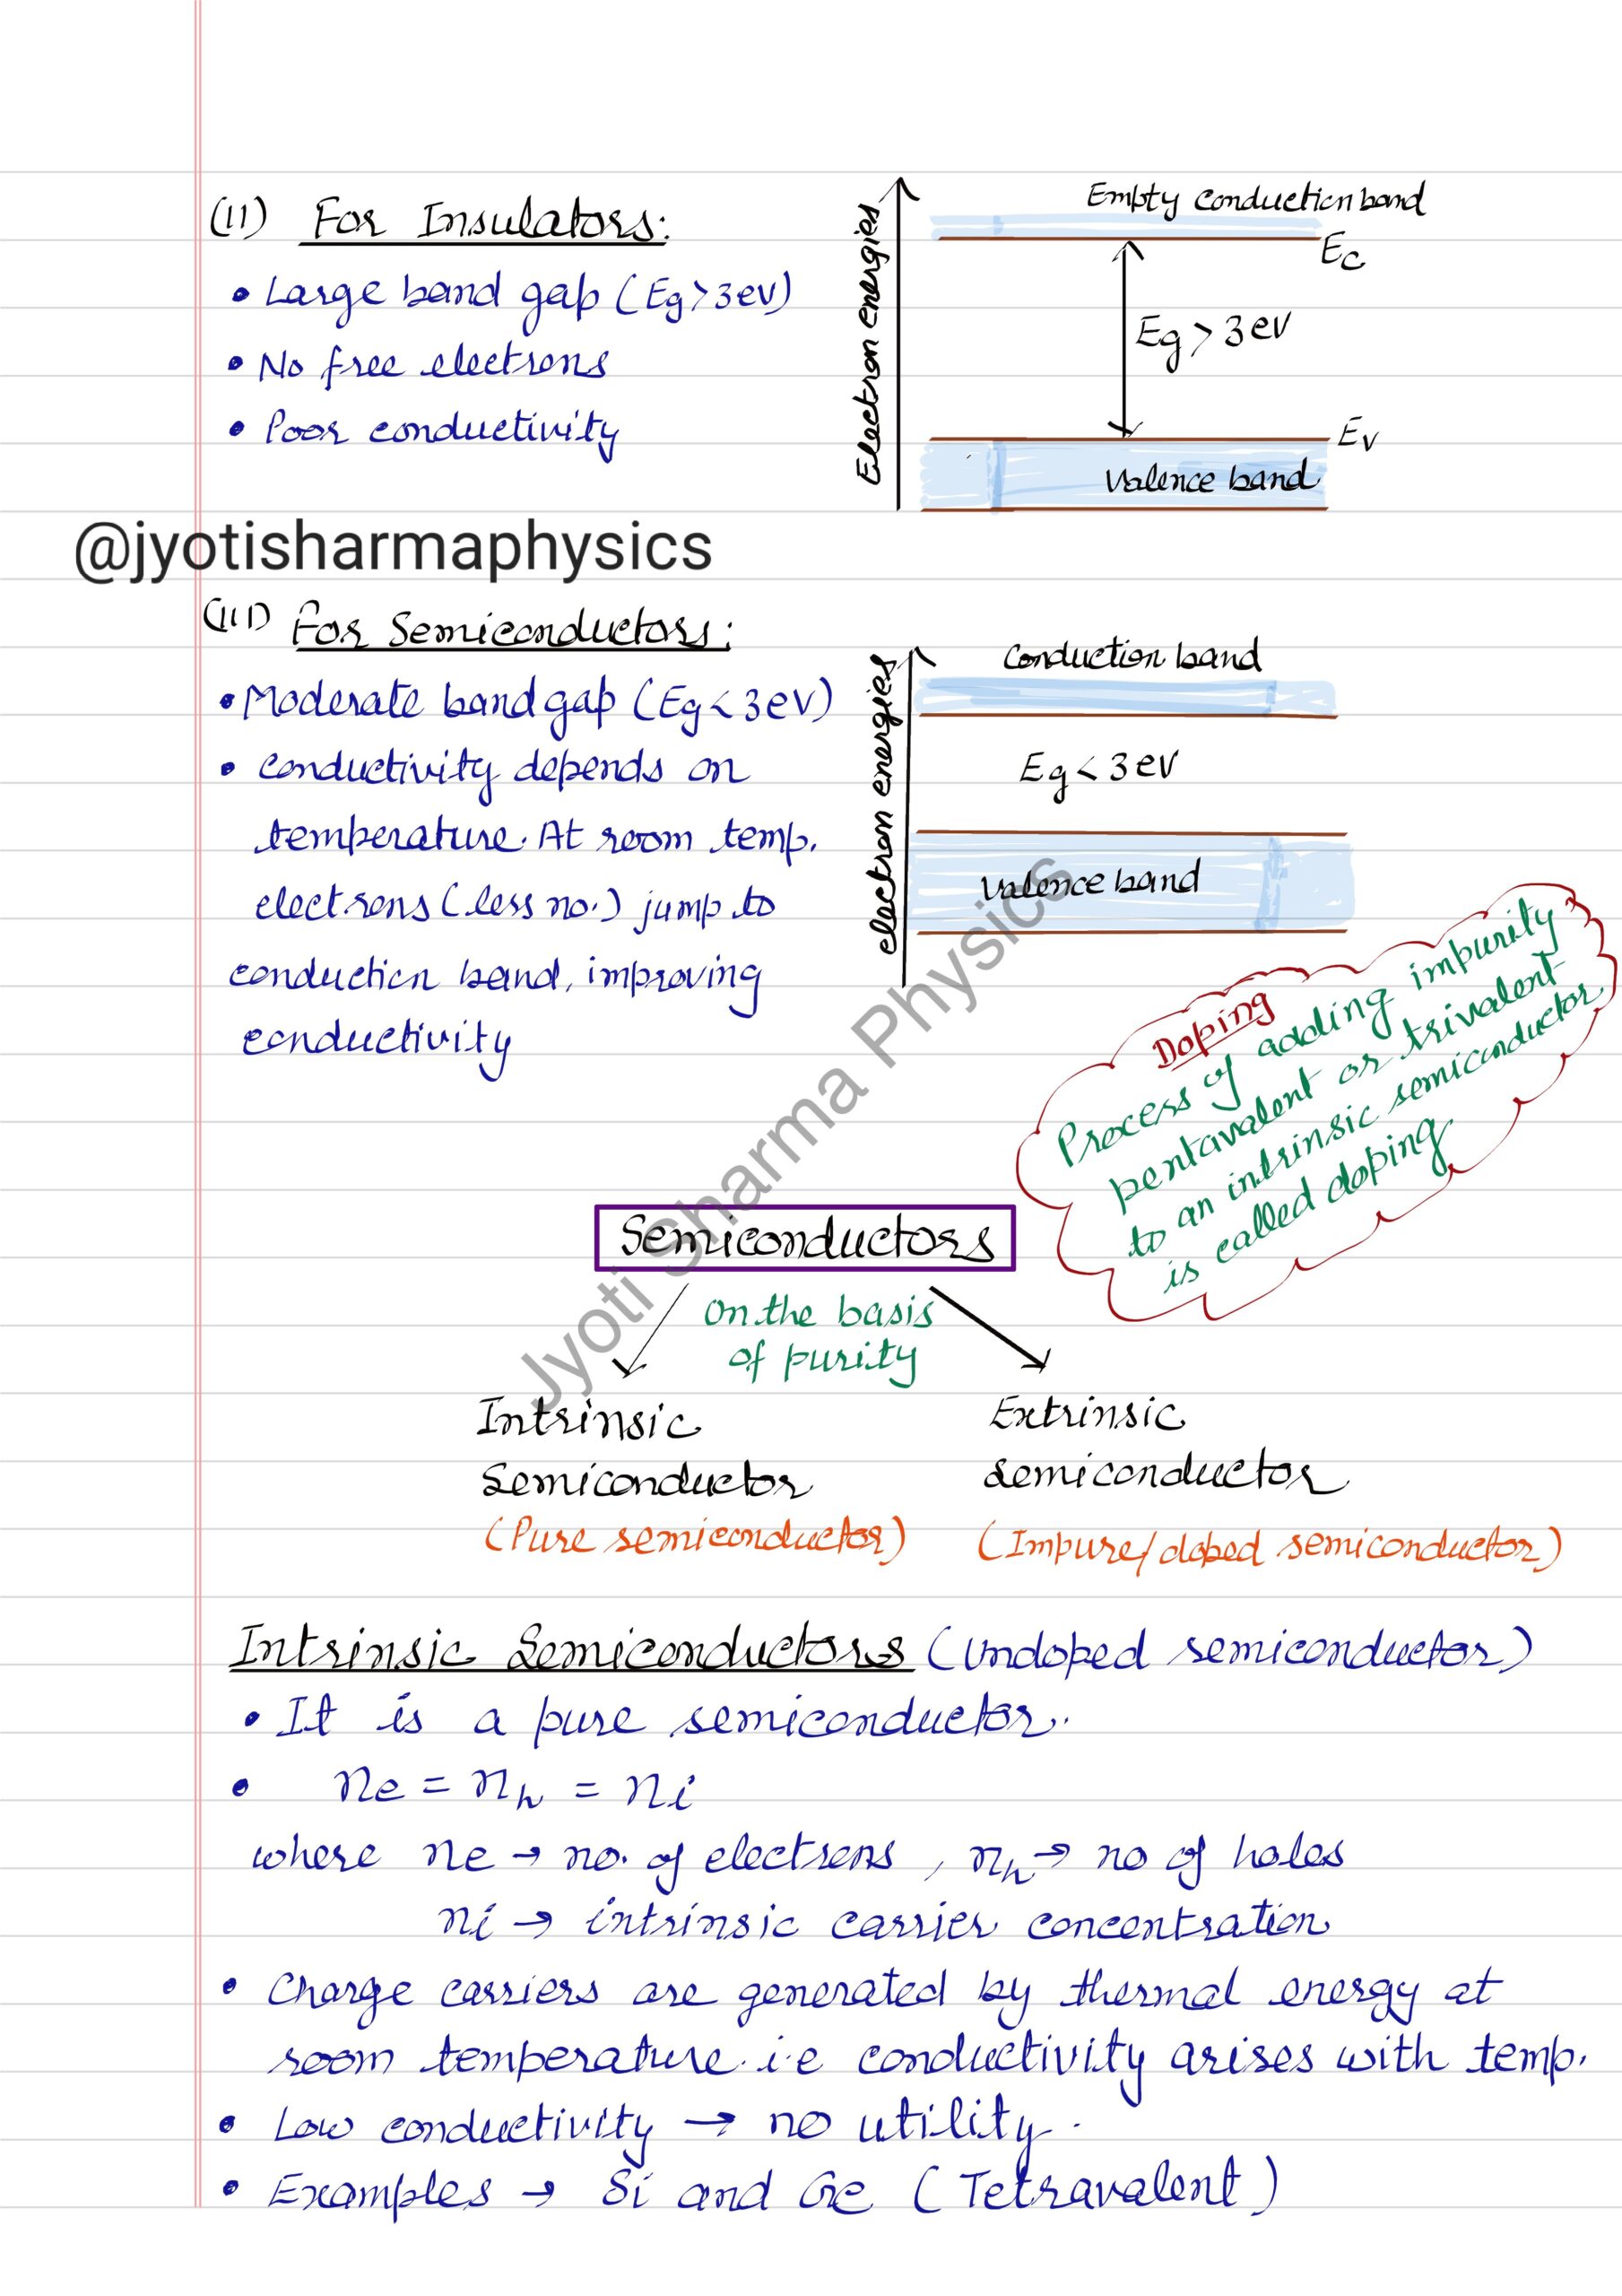 (II) For Insulators:
• Large band gap (Eg > 3 eV)
• No free electrons
• Poor conductivity
Electron energies
Empty conduction band
Ec
Eg > 3 eV
Ev
Valence band
@jyotisharmaphysics
(III) For Semiconductors:
• Moderate band gap (Eg < 3 eV)
• conductivity depends on
temperature. At room temp.
electrons (less no.) jump to
conduction band, improving
conductivity
electron energies
Conduction band
Eg < 3 eV
Valence band
Doping
Process of adding impurity
pentavalent or trivalent
to an intrinsic semiconductor
is called doping
Jyoti Sharma Physics
Semiconductors
On the basis
of purity
Intrinsic
Semiconductor
(Pure semiconductor)
Extrinsic
semiconductor
(Impure/doped semiconductor)
Intrinsic Semiconductors (Undoped semiconductor)
• It is a pure semiconductor.
• ne = nh = ni
where ne → no. of electrons, nh → no of holes
ni → intrinsic carrier concentration
• Charge carriers are generated by thermal energy at
room temperature. i.e conductivity arises with temp.
• Low conductivity → no utility.
• Examples → Si and Ge (Tetravalent)